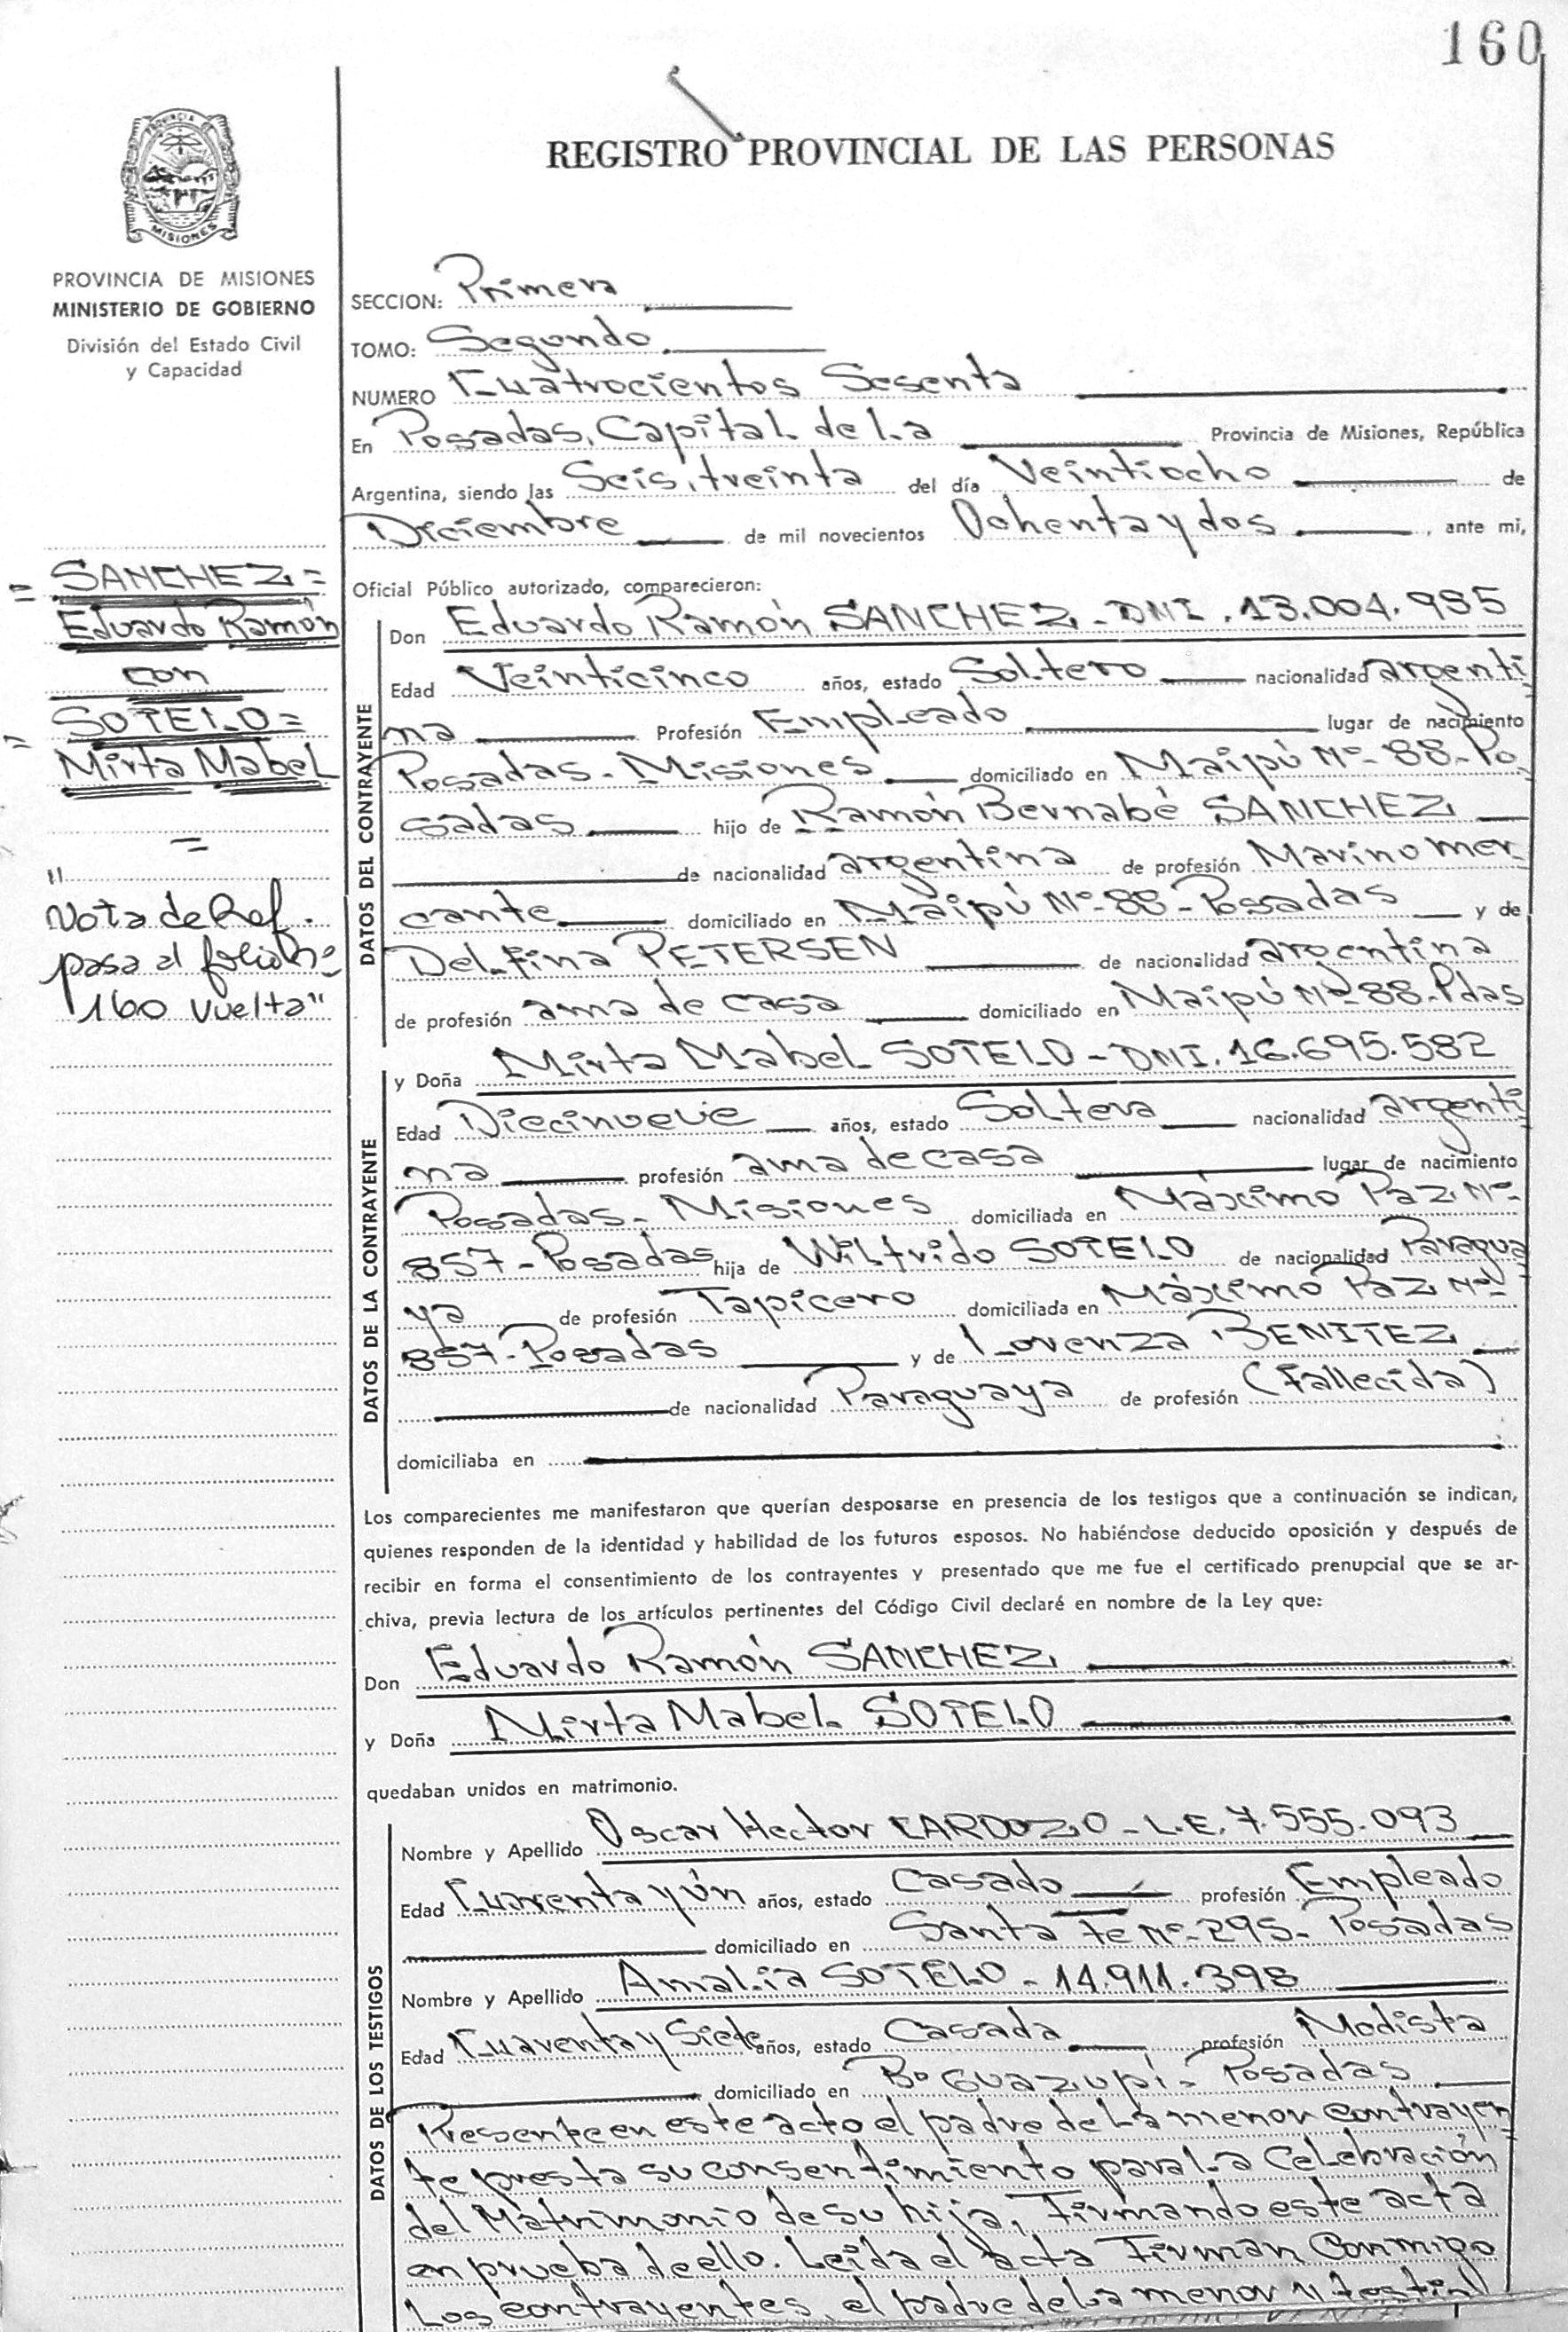 160
REGISTRO PROVINCIAL DE LAS PERSONAS
PROVINCIA DE
MISIONES
PROVINCIA DE MISIONES
MINISTERIO DE GOBIERNO
División del Estado Civil
y Capacidad
SECCION: Primera
TOMO: Segundo
NUMERO Cuatrocientos Sesenta
En Posadas, Capital de La Provincia de Misiones, República
Argentina, siendo las Seis, treinta del día Veintiocho de
Diciembre de mil novecientos Ochenta y dos, ante mi,
Oficial Público autorizado, comparecieron:
= SANCHEZ =
Eduardo Ramón
con
= SOTELO =
Mirta Mabel
=
"
Nota de Ref.
pasa al folio Nº
160 vuelta"
DATOS DEL CONTRAYENTE
Don Eduardo Ramón SANCHEZ - DNI. 13.004.985
Edad Veinticinco años, estado Soltero nacionalidad argenti
na Profesión Empleado lugar de nacimiento
Posadas - Misiones domiciliado en Maipú Nº- 88- Po
sadas hijo de Ramón Bernabé SANCHEZ
de nacionalidad argentina de profesión Marino mer-
cante domiciliado en Maipú Nº- 88- Posadas y de
Delfina PETERSEN de nacionalidad argentina
de profesión ama de casa domiciliado en Maipú Nº 88- Pdas
DATOS DE LA CONTRAYENTE
y Doña Mirta Mabel SOTELO - DNI. 16.695.582
Edad Diecinueve años, estado Soltera nacionalidad argenti
na profesión ama de casa lugar de nacimiento
Posadas - Misiones domiciliada en Máximo Paz Nº-
857 - Posadas hija de Wilfrido SOTELO de nacionalidad Paragua
ya de profesión Tapicero domiciliada en Máximo Paz Nº
857 - Posadas y de Lorenza BENITEZ
de nacionalidad Paraguaya de profesión (Fallecida)
domiciliaba en
Los comparecientes me manifestaron que querían desposarse en presencia de los testigos que a continuación se indican,
quienes responden de la identidad y habilidad de los futuros esposos. No habiéndose deducido oposición y después de
recibir en forma el consentimiento de los contrayentes y presentado que me fue el certificado prenupcial que se ar-
chiva, previa lectura de los artículos pertinentes del Código Civil declaré en nombre de la Ley que:
Don Eduardo Ramón SANCHEZ
y Doña Mirta Mabel SOTELO
quedaban unidos en matrimonio.
DATOS DE LOS TESTIGOS
Nombre y Apellido Oscar Hector CARDOZO - L.E. 7.555.093
Edad Cuarenta y ún años, estado Casado profesión Empleado
domiciliado en Santa Fe Nº- 295- Posadas
Nombre y Apellido Amalia SOTELO - 14.911.398
Edad Cuarenta y Siete años, estado Casada profesión Modista
domiciliado en Bº Guazupí - Posadas
Presente en este acto el padre de La menor contrayen
te presta su consentimiento para La Celebración
del Matrimonio de su hija, Firmando este acta
en prueba de ello. Leída el acta Firman Conmigo
Los contrayentes el padre de La menor y